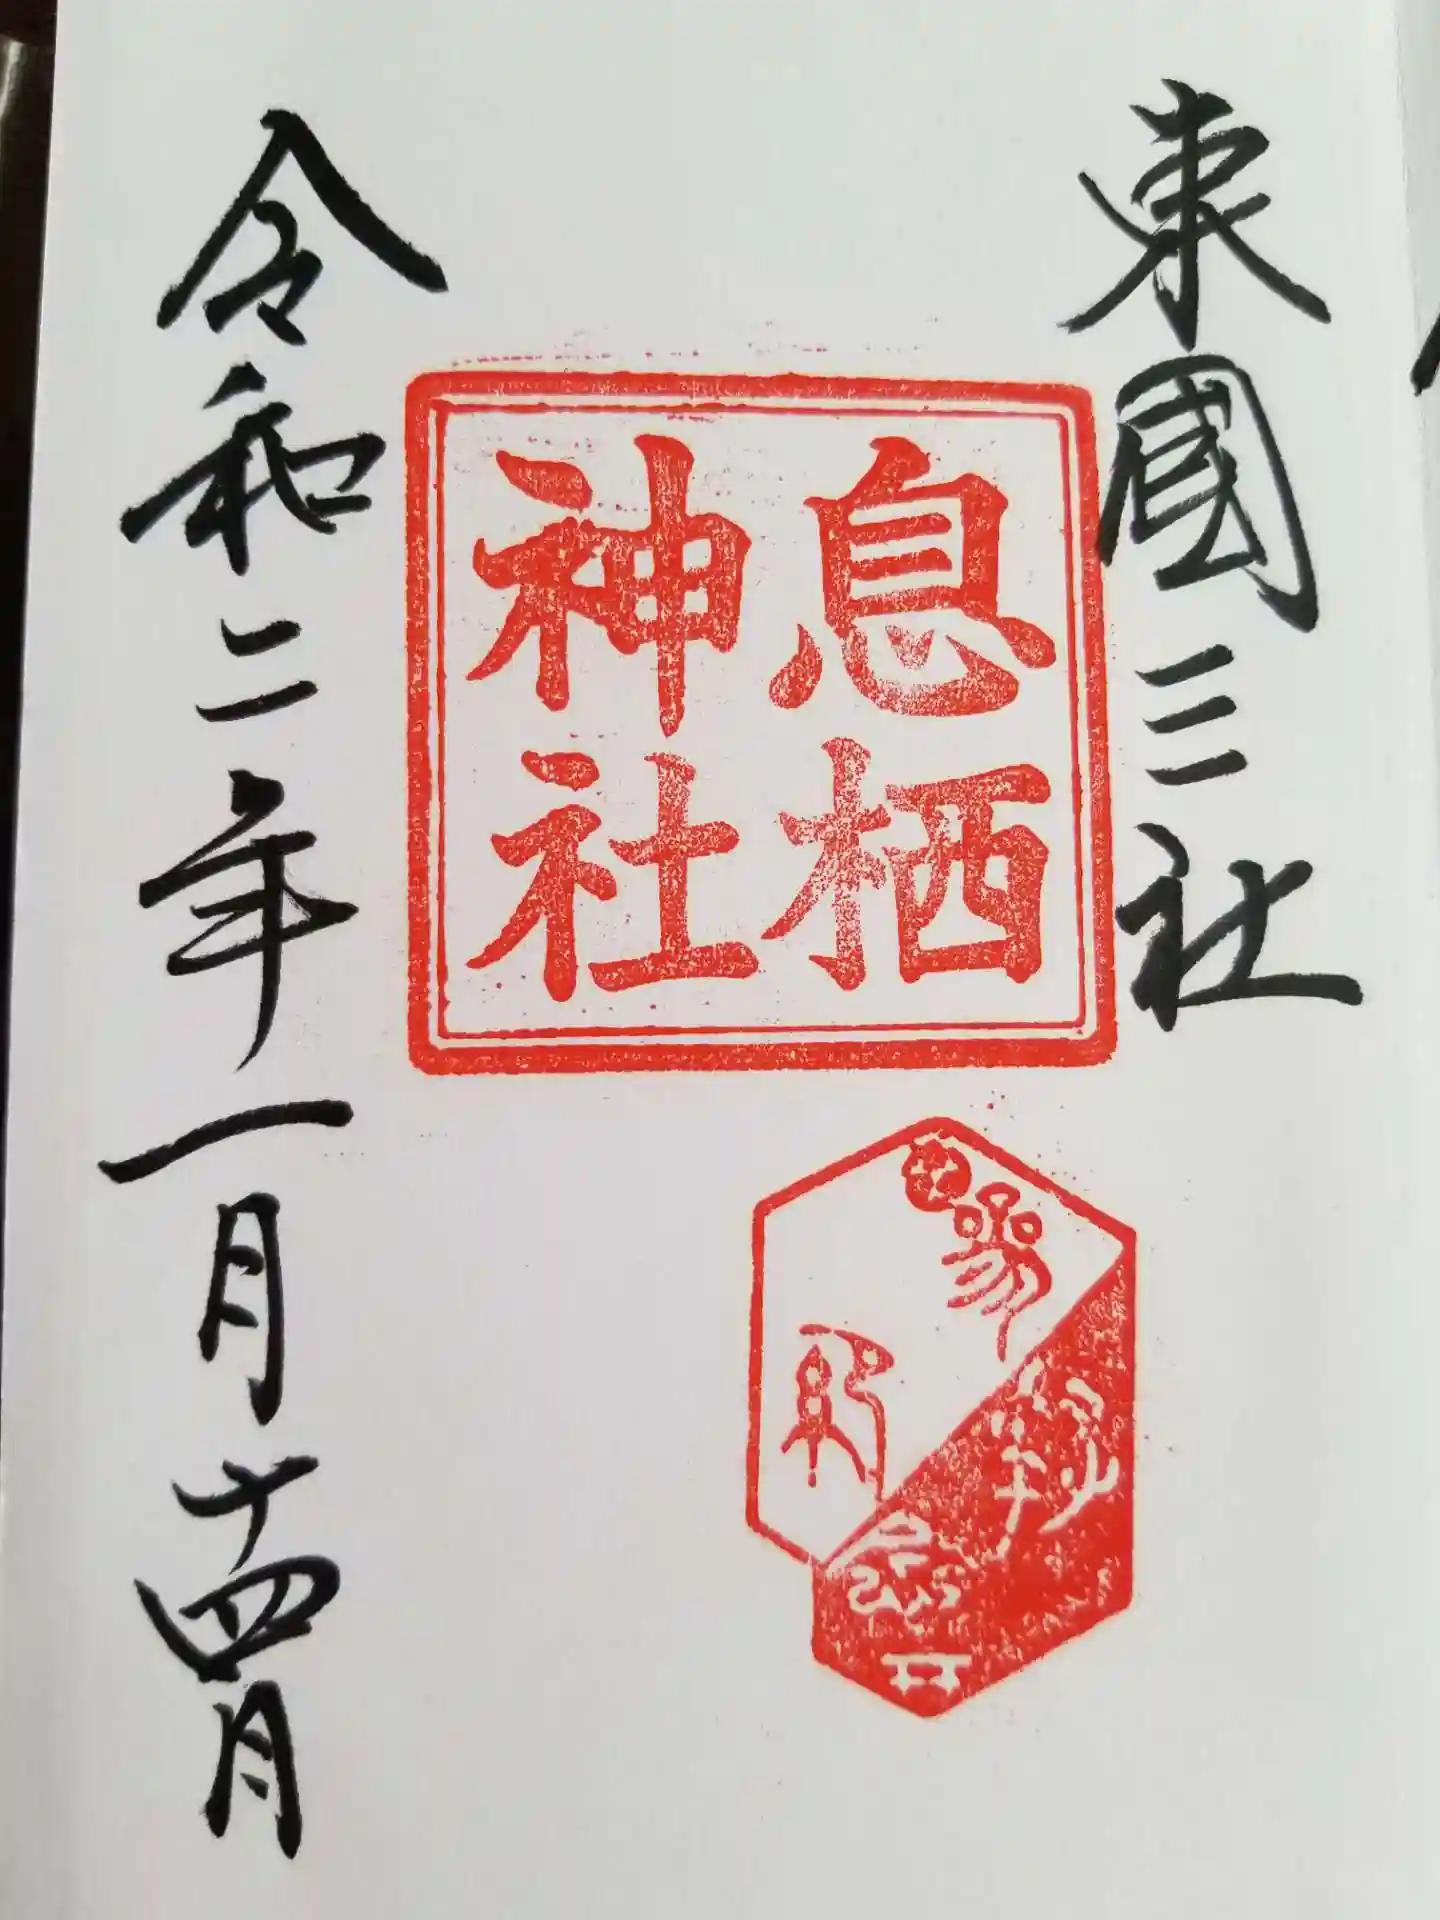 東國三社
息栖
神社
令和二年一月十四日